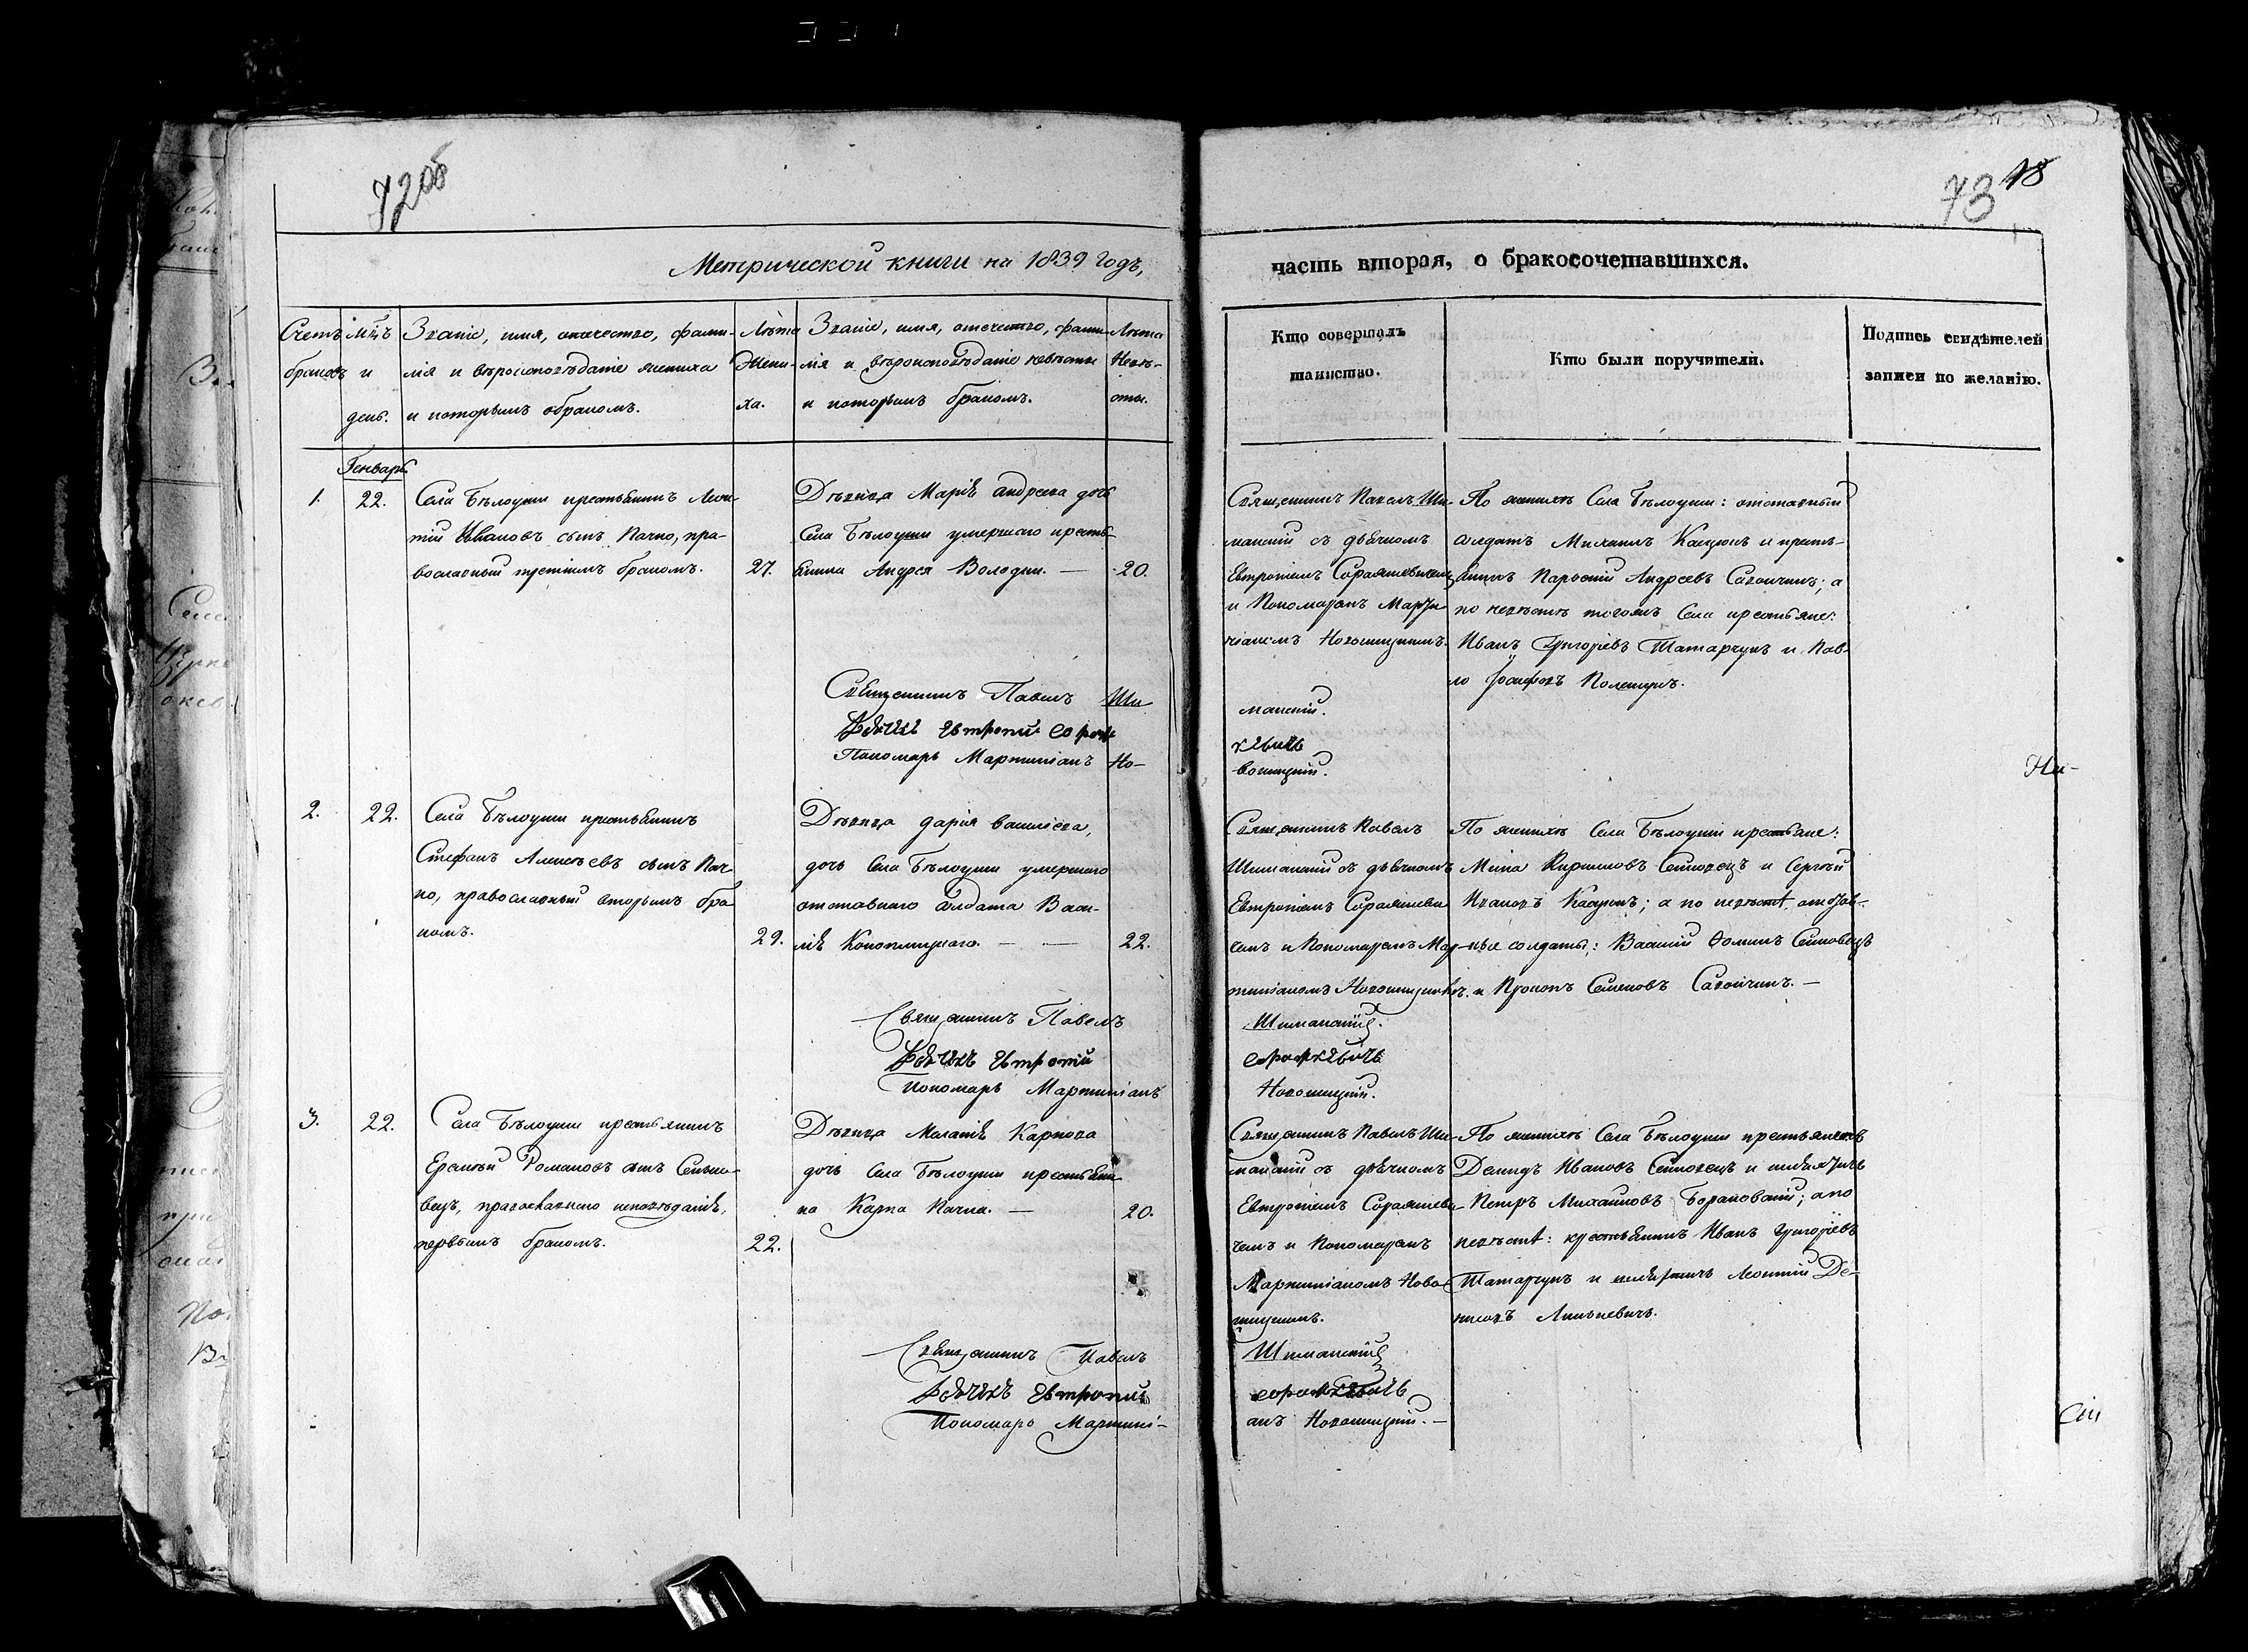 72об
73 18
Метрической книги на 1839 годъ,
часть вторая, о бракосочетавшихся.
Счетъ браковъ
Мцъ и день.
Званіе, имя, отечество, фами-
лія и вѣроисповѣданіе жениха
и которымъ бракомъ.
Лѣта
Жени-
ха.
Званіе, имя, отечество, фами-
лія и вѣроисповѣданіе невѣсты
и которымъ бракомъ.
Лѣта
Невѣ-
сты.
Кто совершалъ
таинство.
Кто были поручители.
Подпись свидѣтелей
записи по желанію.
Генварь
1.
22.
Села Бѣлоуши крестьянинъ Леон-
тій Ивановъ сынъ Качко, пра-
вославный третіимъ бракомъ.
27.
Дѣвица Марія Андреева дочь
Села Бѣлоуши умершаго кресть-
янина Андрея Володки. —
20.
Священникъ Павелъ Ши-
манскій съ дьячкомъ
Евтропіемъ
и Пономаремъ Марти-
ніаномъ Новошицкимъ.
По женихѣ Села Бѣлоуши: отставный
солдатъ Михаилъ Кацюкъ и кресть-
янинъ Андреевъ; а
по невѣстѣ тогожъ Села крестьяне:
Иванъ Григорьевъ Татарчукъ и Пав-
ло Іосифовъ Полещукъ.
Священникъ Павелъ Ши
манскій.
Дьячекъ Евтропій
Пономарь Мартиніанъ Но-
вошицкій.
Ни-
2.
22.
Села Бѣлоуши крестьянинъ
Стефанъ Алексѣевъ сынъ Кач-
ко, православный вторымъ бра
комъ.
29.
Дѣвица Дарія Василіева,
дочь Села Бѣлоуши умершаго
отставнаго солдата Васи-
лія Коноплицкаго. — —
22.
Священникъ Павелъ
Шиманскій съ дьячкомъ
Евтропіемъ
чемъ и Пономаремъ Мар-
тиніаномъ Новошицкимъ.
По женихѣ Села Бѣлоуши крестьяне:
Мина Кириловъ Сенковецъ и Сергѣй
Ивановъ Кацюкъ; а по невѣстѣ отстав-
ные солдаты: Василій Ѳоминъ Сенковецъ
и Прокопъ Семеновъ. —
Священникъ Павелъ
Шиманскій.
Дьячекъ Евтропій
Пономарь Мартиніанъ
Новошицкій.
3.
22.
Села Бѣлоуши крестьянинъ
Еремѣй Романовъ сынъ Сенько-
вецъ, православнаго исповѣданія,
первымъ бракомъ.
22.
Дѣвица Маланія Карпова
дочь Села Бѣлоуши крестьяни-
на Карпа Качка. —
20.
Священникъ Павелъ Ши-
манскій съ дьячкомъ
Евтропіемъ
чемъ и Пономаремъ
Мартиніаномъ Ново-
шицкимъ.
По женихѣ Села Бѣлоуши крестьянинъ
Демидъ Ивановъ Сенковецъ и шляхтичь
Петръ Михайловъ Борановскій; а по
невѣстѣ: крестьянинъ Иванъ Григорьевъ
Татарчукъ и шляхтичь Леонтій Де-
нисовъ Линкевичъ.
Священникъ Павелъ
Шиманскій
Дьячекъ Евтропій
Пономарь Мартині-
анъ Новошицкій. —